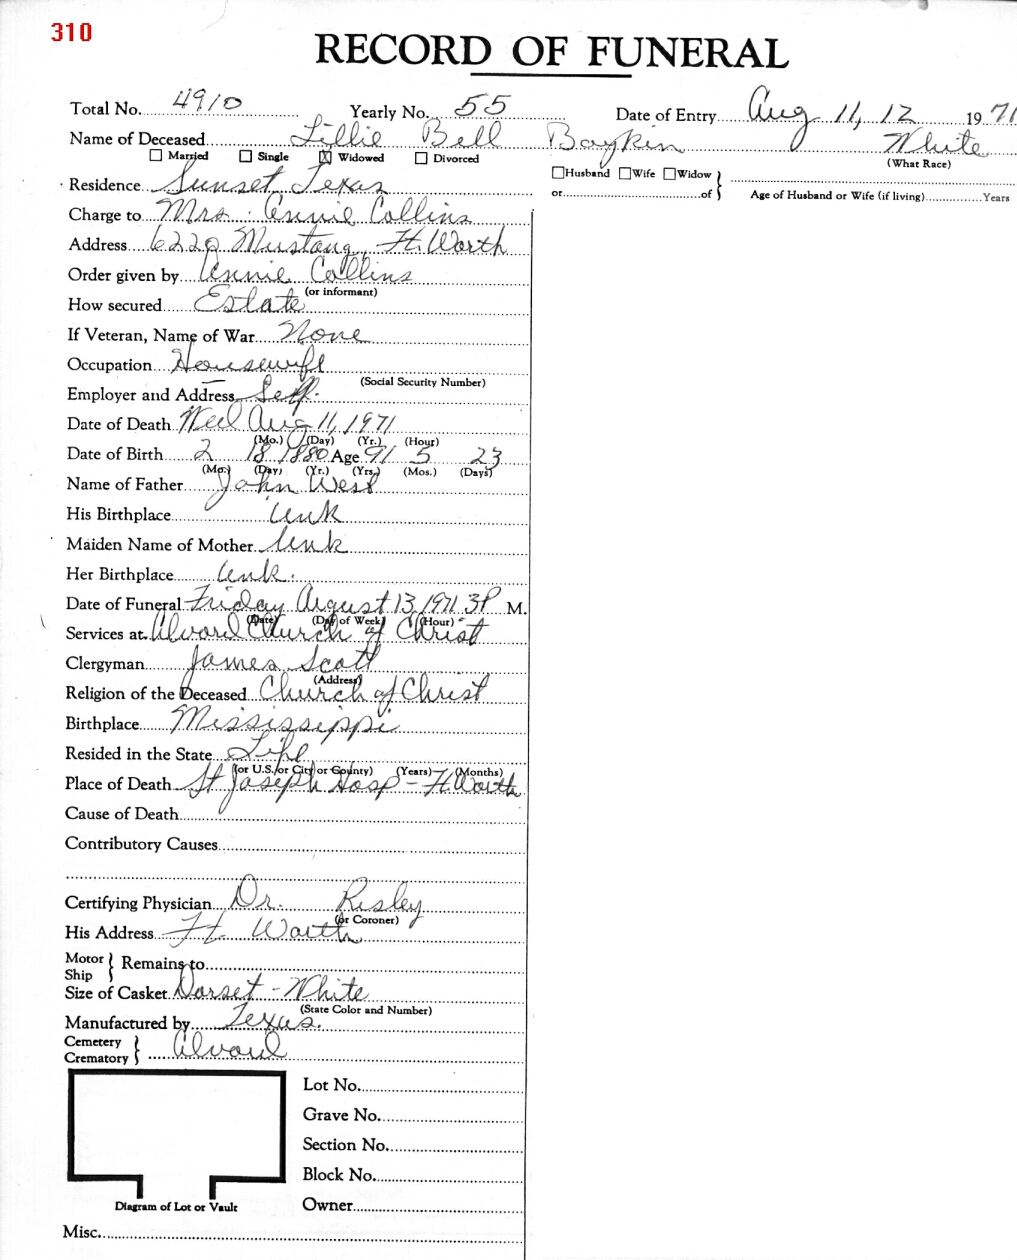 310
RECORD OF FUNERAL
Total No. 4910 Yearly No. 55 Date of Entry Aug 11, 12 1971
Name of Deceased Lillie Bell Boykin White
☐ Married ☐ Single ☒ Widowed ☐ Divorced (What Race)
☐ Husband ☐ Wife ☐ Widow }
Residence Sunset, Texas or of } Age of Husband or Wife (if living) Years
Charge to Mrs. Annie Collins
Address 6220 Mustang, Ft. Worth
Order given by Annie Collins
(or informant)
How secured Estate
If Veteran, Name of War None
Occupation Housewife
(Social Security Number)
Employer and Address Self.
Date of Death Wed Aug 11, 1971
(Mo.) (Day) (Yr.) (Hour)
Date of Birth 2 18 1880 Age 91 5 23
(Mo.) (Day) (Yr.) (Yrs.) (Mos.) (Days)
Name of Father John West
His Birthplace Unk
Maiden Name of Mother Unk
Her Birthplace Unk.
Date of Funeral Friday August 13, 1971 3P M.
(Date) (Day of Week) (Hour)
Services at Alvord Church of Christ
Clergyman James Scott
(Address)
Religion of the Deceased Church of Christ
Birthplace Mississippi
Resided in the State Life
(or U.S. or City or County) (Years) (Months)
Place of Death St Joseph Hosp - Ft. Worth
Cause of Death
Contributory Causes
Certifying Physician Dr. Risley
(or Coroner)
His Address Ft. Worth
Motor Ship } Remains to
Size of Casket Dorset - White
(State Color and Number)
Manufactured by Texas.
Cemetery Crematory } Alvord
Lot No.
Grave No.
Section No.
Block No.
Diagram of Lot or Vault
Owner
Misc.